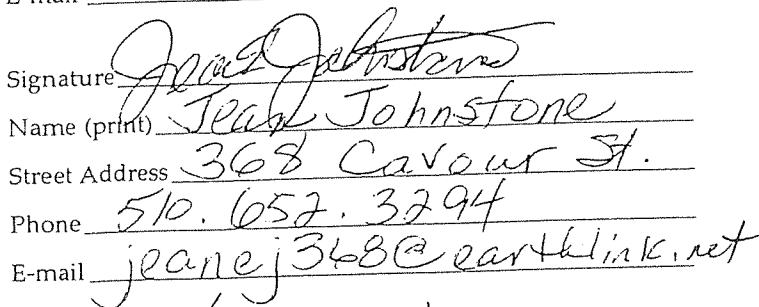 E-mail
Signature Jean E Johnstone
Name (print) Jean Johnstone
Street Address 368 Cavour St.
Phone 510.652.3294
E-mail jeanej368@earthlink.net